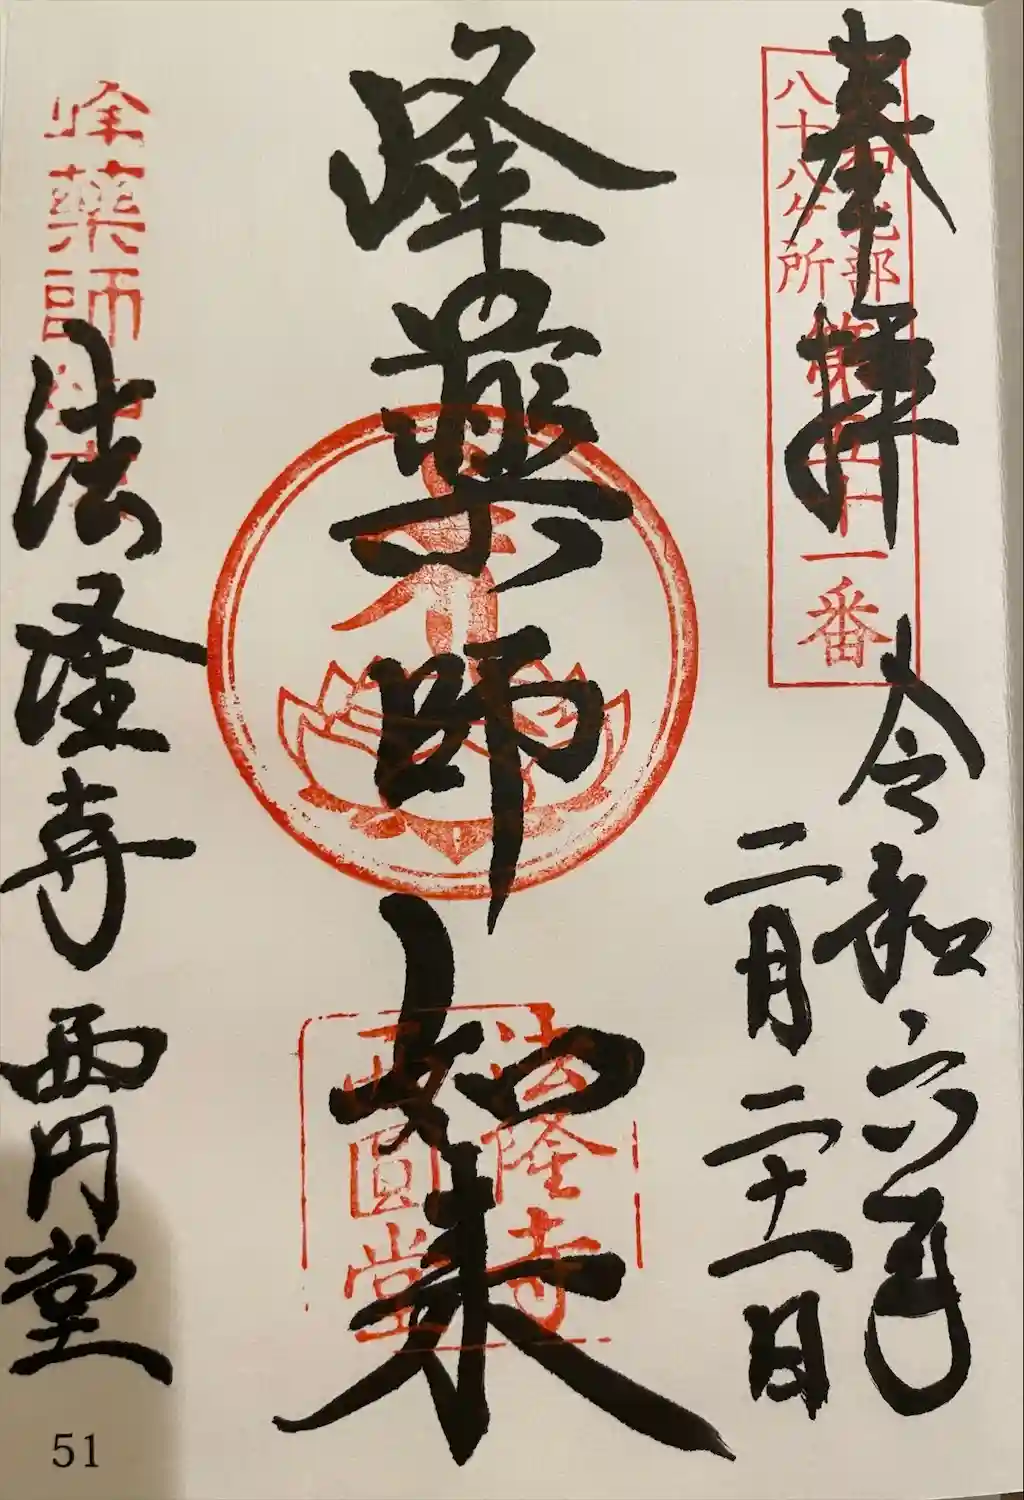 奉拝
八十八ヶ所
第五十一番
令和六年
二月二十一日
峰薬師如来
法隆寺
西圓堂
峰藥師
法隆寺 西円堂
51